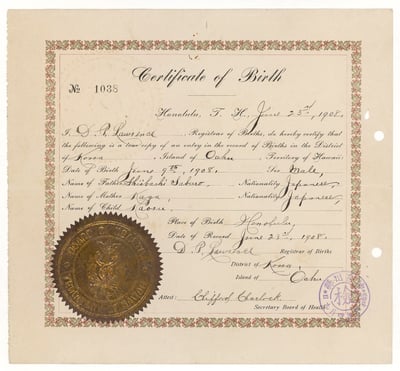 Certificate of Birth
No 1038
Honolulu, T. H., June 23rd, 1908.
I, D. P. Lawrence, Registrar of Births, do hereby certify that
the following is a true copy of an entry in the record of Births in the District
of Kona, Island of Oahu, Territory of Hawaii:
Date of Birth June 9th, 1908. Sex Male,
Name of Father Nationality Japanese,
Name of Mother Nationality Japanese,
Name of Child
Place of Birth Honolulu,
Date of Record June 23rd, 1908,
D. P. Lawrence Registrar of Births
District of Kona,
Island of Oahu
Attest: Clifford Charlock
Secretary Board of Health